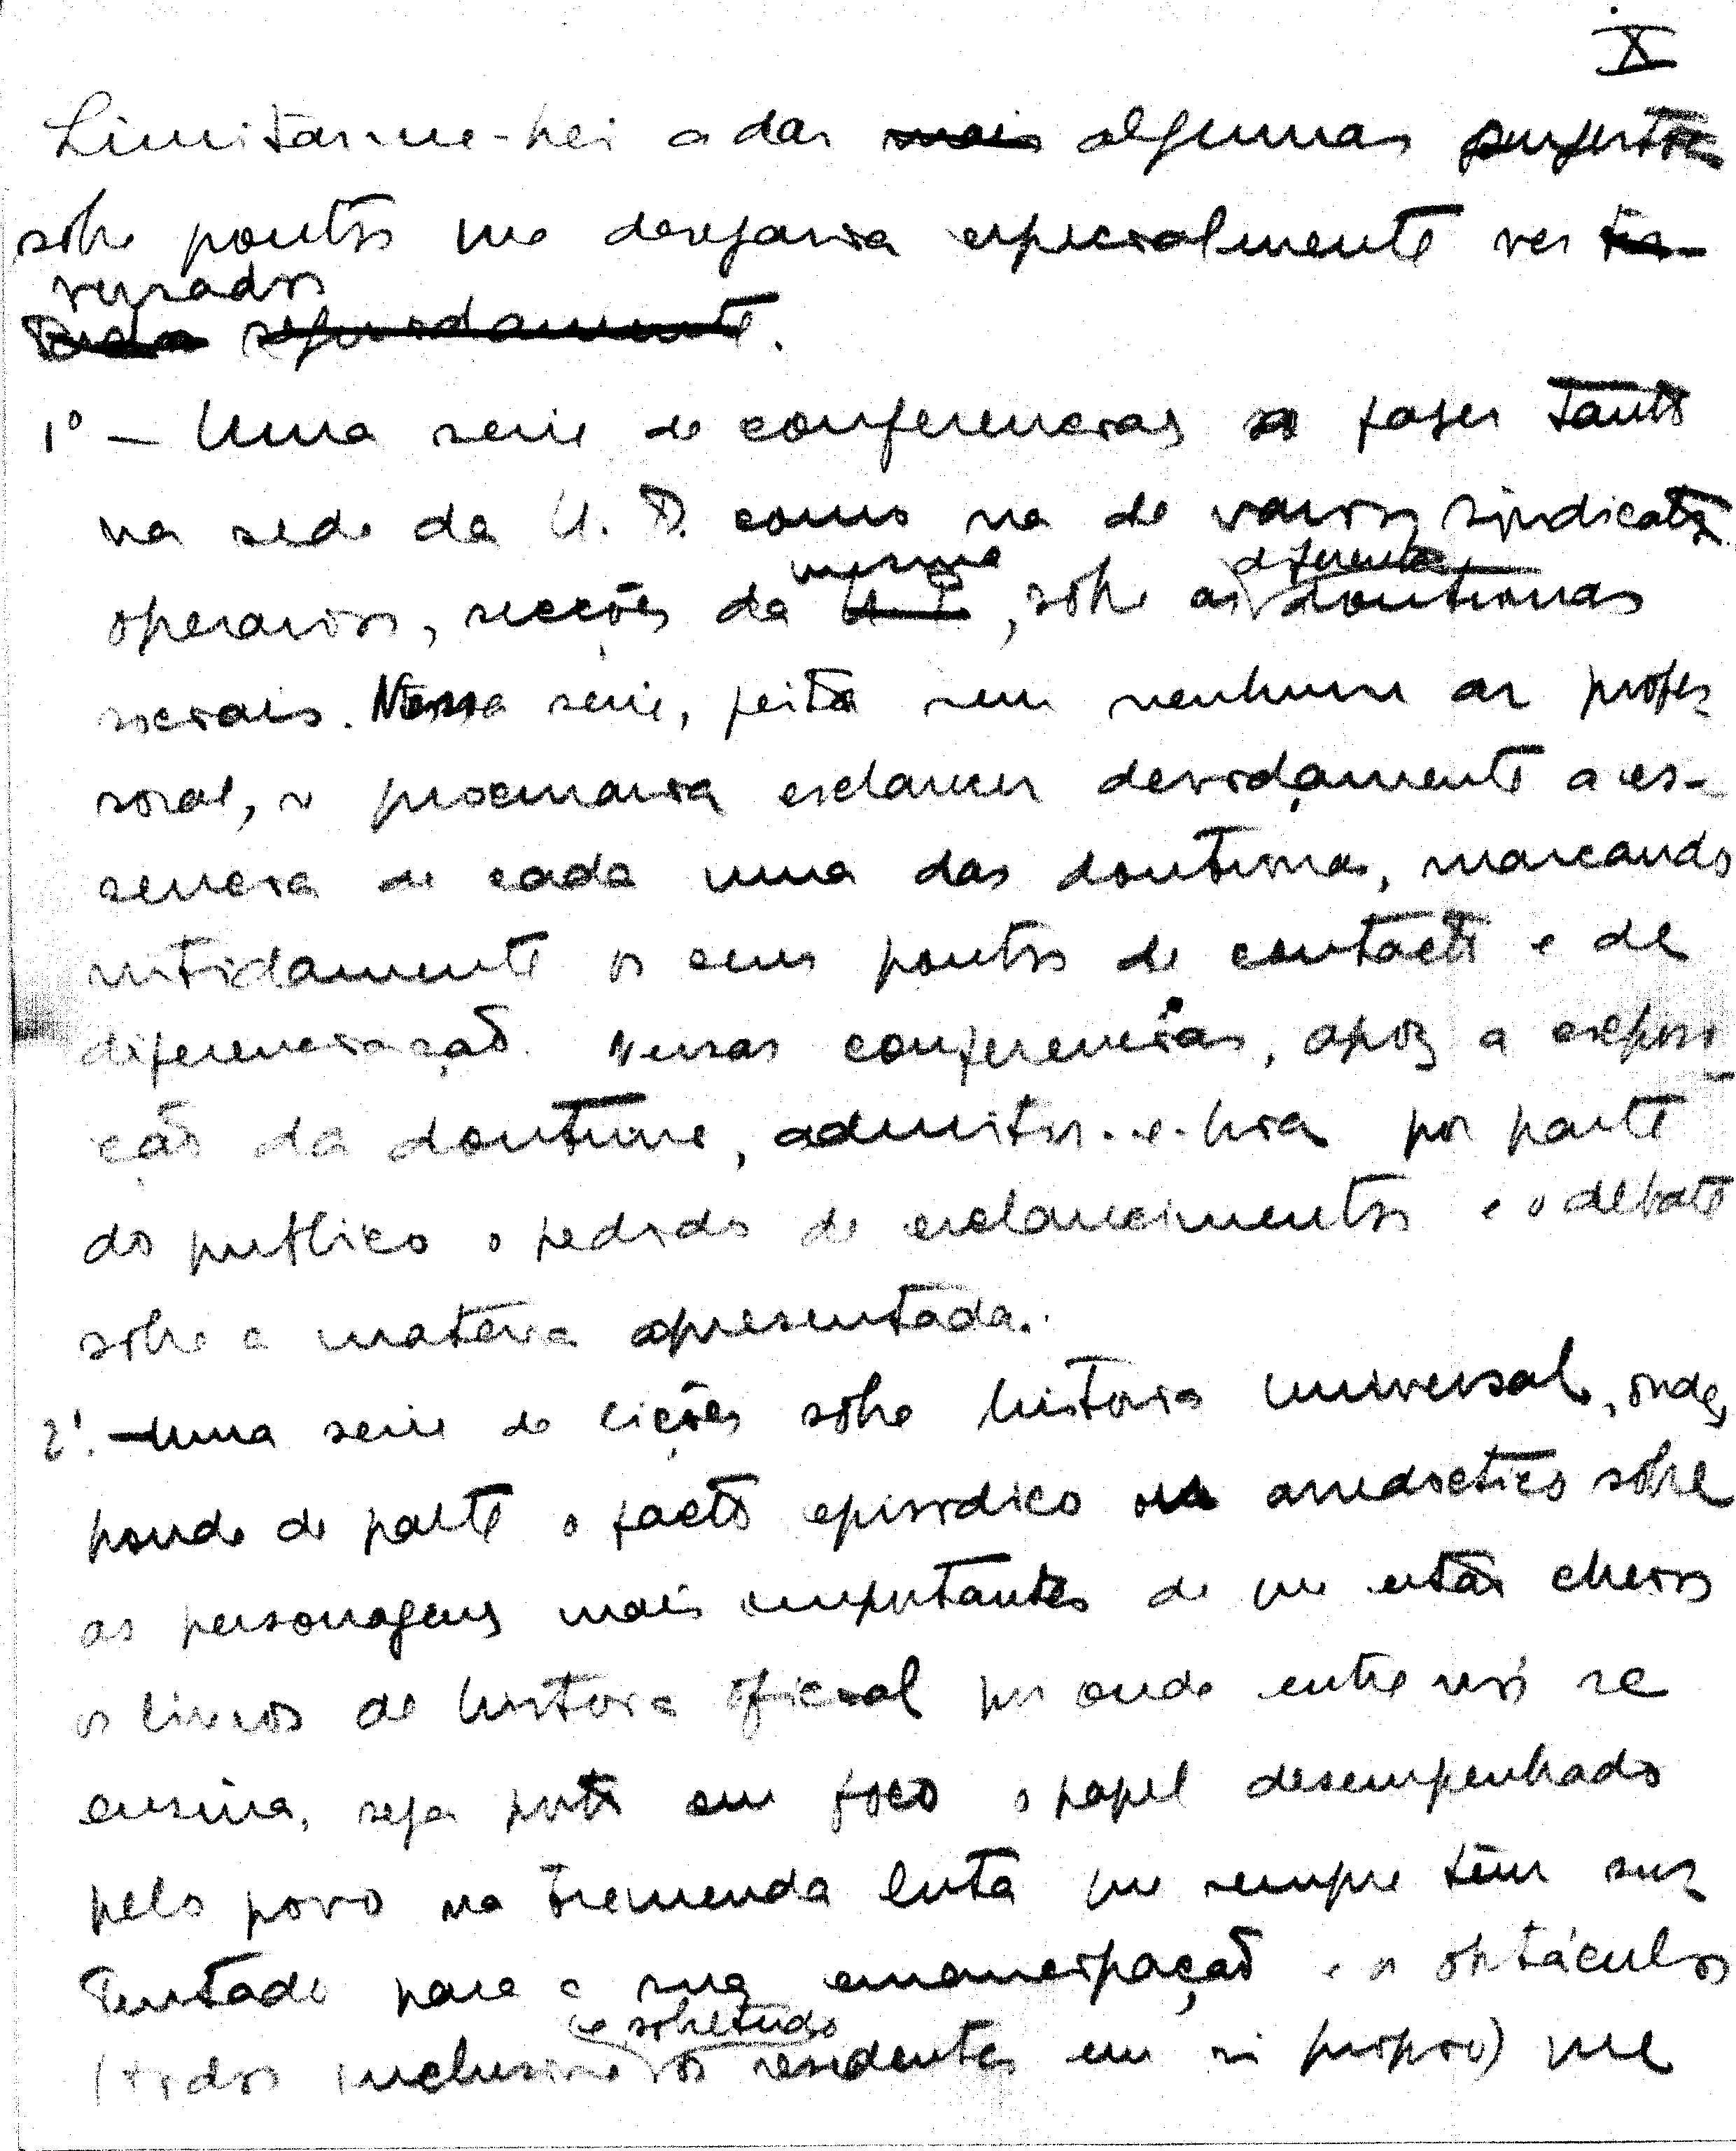 X
Limitar-me-hei a dar mais algumas sugestões
sôbre pontos que desejaria especialmente ver
versados
seguidamente.
1º — Uma serie de conferencias a fazer tanto
na sede da U. P. como na de varios sindicatos
mesma diferentes
operarios, secções da U. P., sôbre as doutrinas
sociais. Nessa serie, feita sem nenhum ar profes-
soral, se procuraria esclarecer devidamente a es-
sencia de cada uma das doutrinas, marcando
nitidamente os seus pontos de contacto e de
diferenciação. Nessas conferencias, apoz a exposi-
ção da doutrina, admitir-se-hia por parte
do publico o pedido de esclarecimentos e o debate
sôbre a materia apresentada.
2º. — Uma serie de lições sôbre historia universal, onde,
pondo de parte o facto episodico ou anedoctico sôbre
as personagens mais importantes de que estão cheios
os livros de historia oficial por onde entre nós se
ensina, seja posto em foco o papel desempenhado
pelo povo na tremenda luta que sempre tem sus-
tentado para a sua emancipação e os obstáculos
e sobretudo
(todos inclusive os residentes em si proprio) que